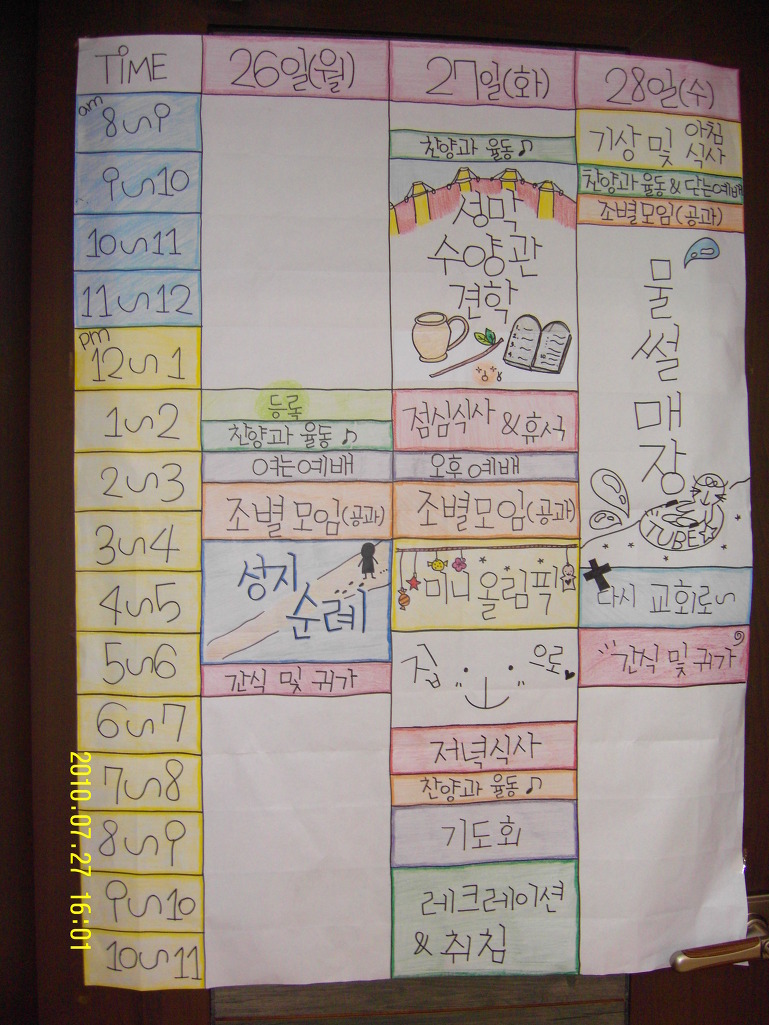 TIME
26일(월)
27일(화)
28일(수)
am
8~9
9~10
10~11
11~12
pm
12~1
1~2
2~3
3~4
4~5
5~6
6~7
7~8
8~9
9~10
10~11
등록
찬양과 율동♪
여는예배
조별모임(공과)
성지
순례
간식 및 귀가
찬양과 율동♪
성막
수양관
견학
점심식사 &휴식
오후예배
조별모임(공과)
미니올림픽!
집 으로
저녁식사
찬양과 율동♪
기도회
레크레이션
& 취침
기상 및 아침
식사
찬양과 율동 & 닫는예배
조별모임(공과)
물
썰
매
장
TUBE
다시 교회로~
간식 및 귀가
2010.07.27 16:01